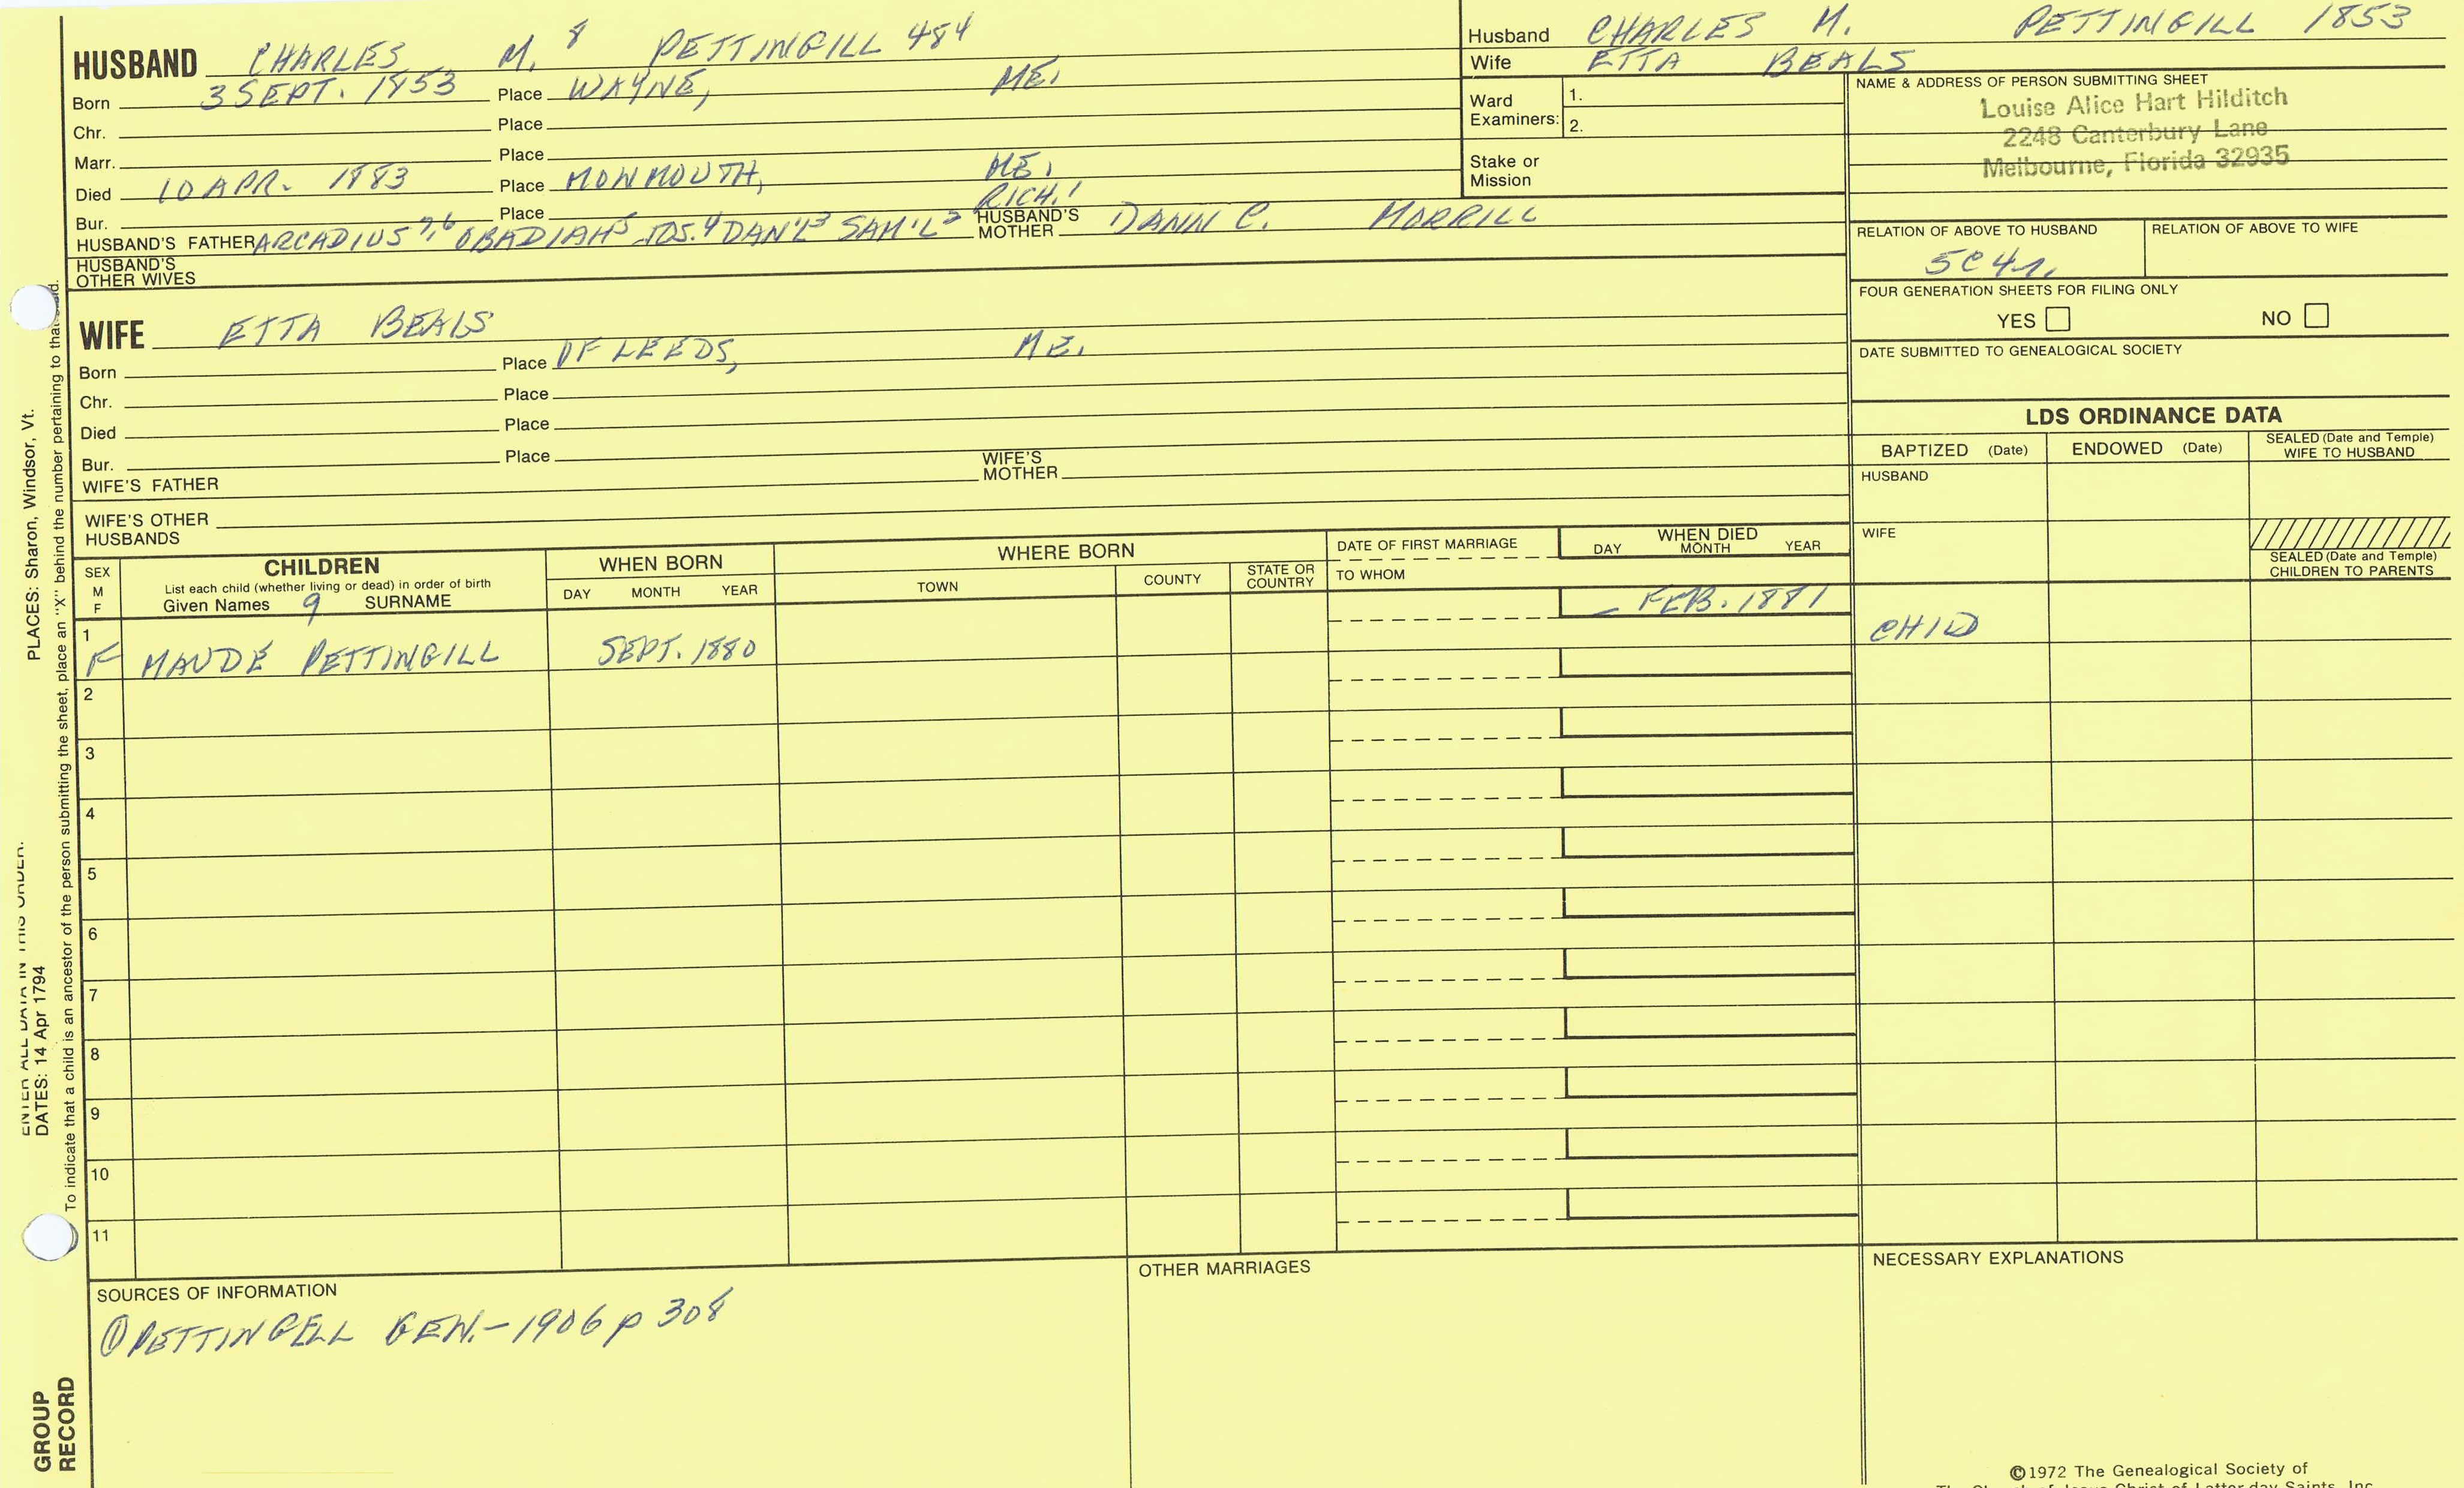 HUSBAND CHARLES M. 8 PETTINGILL 484
Born 3 SEPT. 1853 Place WAYNE, ME.
Chr. Place
Marr. Place
Died 10 APR. 1883 Place MONMOUTH, ME.
Bur. Place RICH.1
HUSBAND'S FATHER ARCADIUS 7,6 OBADIAH5 JOS.4 DAN'L3 SAM'L2 HUSBAND'S MOTHER DANN C. MORRILL
HUSBAND'S OTHER WIVES
WIFE ETTA BEALS
Born Place OF LEEDS, ME.
Chr. Place
Died Place
Bur. Place
WIFE'S FATHER WIFE'S MOTHER
WIFE'S OTHER HUSBANDS
Husband CHARLES M. PETTINGILL 1853
Wife ETTA BEALS
Ward Examiners: 1.
2.
Stake or Mission
NAME & ADDRESS OF PERSON SUBMITTING SHEET
Louise Alice Hart Hilditch
2248 Canterbury Lane
Melbourne, Florida 32935
RELATION OF ABOVE TO HUSBAND RELATION OF ABOVE TO WIFE
5C4r.
FOUR GENERATION SHEETS FOR FILING ONLY
YES NO
DATE SUBMITTED TO GENEALOGICAL SOCIETY
LDS ORDINANCE DATA
BAPTIZED (Date) ENDOWED (Date) SEALED (Date and Temple) WIFE TO HUSBAND
HUSBAND
WIFE
SEALED (Date and Temple) CHILDREN TO PARENTS
SEX M F
CHILDREN
List each child (whether living or dead) in order of birth
Given Names 9 SURNAME
WHEN BORN
DAY MONTH YEAR
WHERE BORN
TOWN COUNTY STATE OR COUNTRY
DATE OF FIRST MARRIAGE
TO WHOM
WHEN DIED
DAY MONTH YEAR
1 F MAUDE PETTINGILL SEPT. 1880 – FEB. 1881 CHILD
2
3
4
5
6
7
8
9
10
11
SOURCES OF INFORMATION
① PETTINGELL GEN.- 1906 p 308
OTHER MARRIAGES
NECESSARY EXPLANATIONS
©1972 The Genealogical Society of
The Church of Jesus Christ of Latter-day Saints, Inc.
ENTER ALL DATA IN THIS ORDER:
DATES: 14 Apr 1794
PLACES: Sharon, Windsor, Vt.
To indicate that a child is an ancestor of the person submitting the sheet, place an "X" behind the number pertaining to that child.
GROUP RECORD